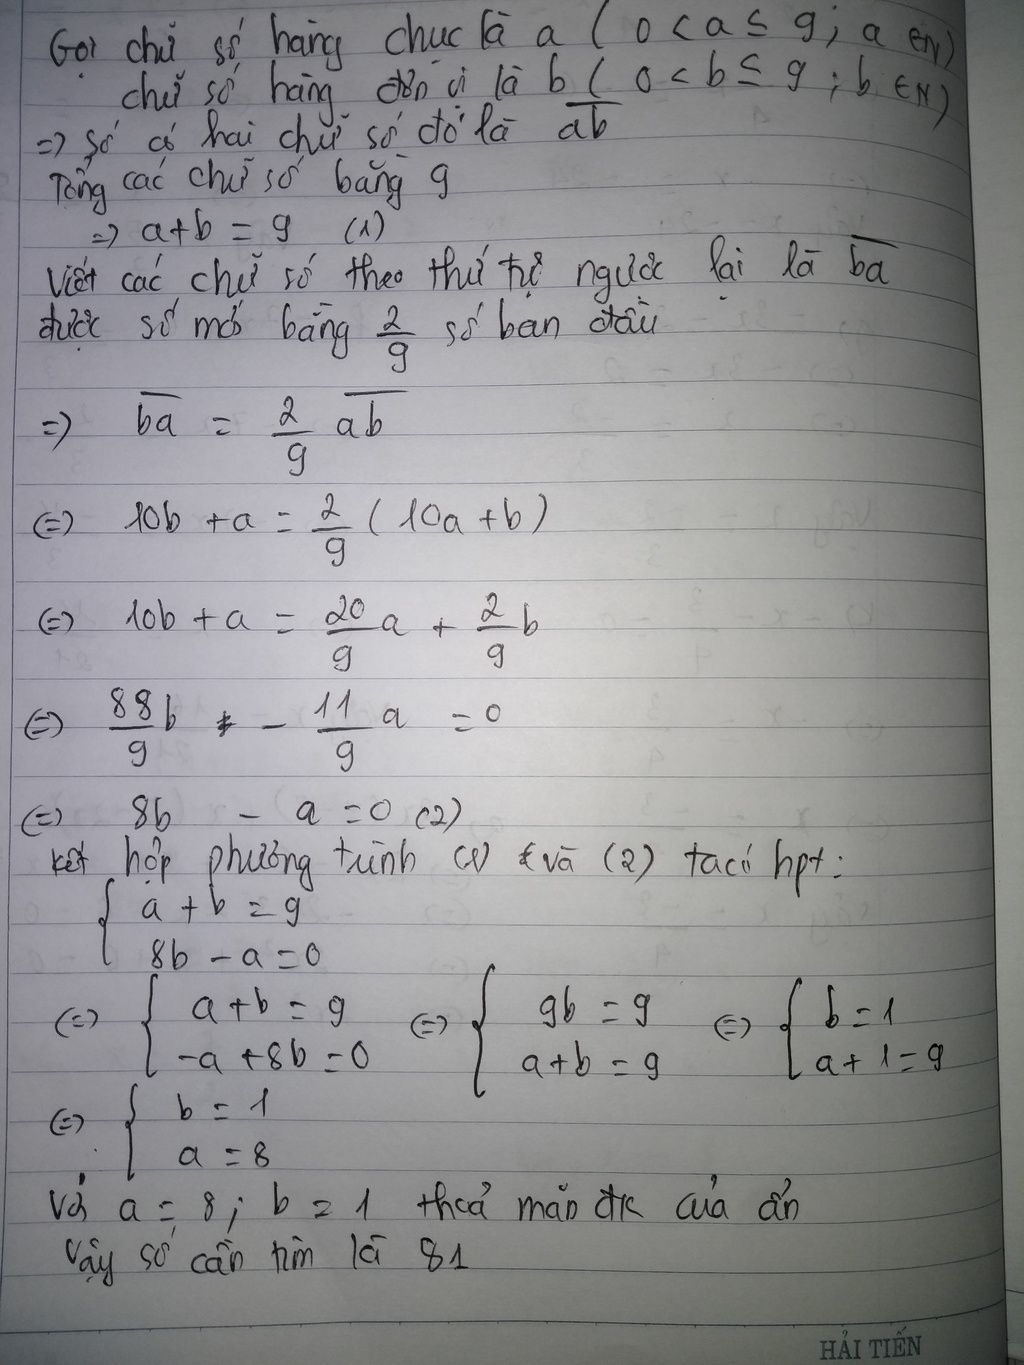 Gọi chữ số hàng chục là a ( 0 < a ≤ 9 ; a ∈ N )
chữ số hàng đơn vị là b ( 0 < b ≤ 9 ; b ∈ N )
=> số có hai chữ số đó là \overline{ab}
Tổng các chữ số bằng 9
=> a + b = 9 (1)
Viết các chữ số theo thứ tự ngược lại là \overline{ba}
được số mới bằng 2/9 số ban đầu
=> \overline{ba} = 2/9 \overline{ab}
(=) 10b + a = 2/9 ( 10a + b )
(=) 10b + a = 20/9 a + 2/9 b
(=) 88/9 b - 11/9 a = 0
(=) 8b - a = 0 (2)
Kết hợp phương trình (1) và (2) ta có hpt :
{ a + b = 9
8b - a = 0
(=) { a + b = 9 (=) { 9b = 9 (=) { b = 1
-a + 8b = 0 a + b = 9 a + 1 = 9
(=) { b = 1
a = 8
Với a = 8 ; b = 1 thoả mãn đk của ẩn
Vậy số cần tìm là 81
HẢI TIẾN